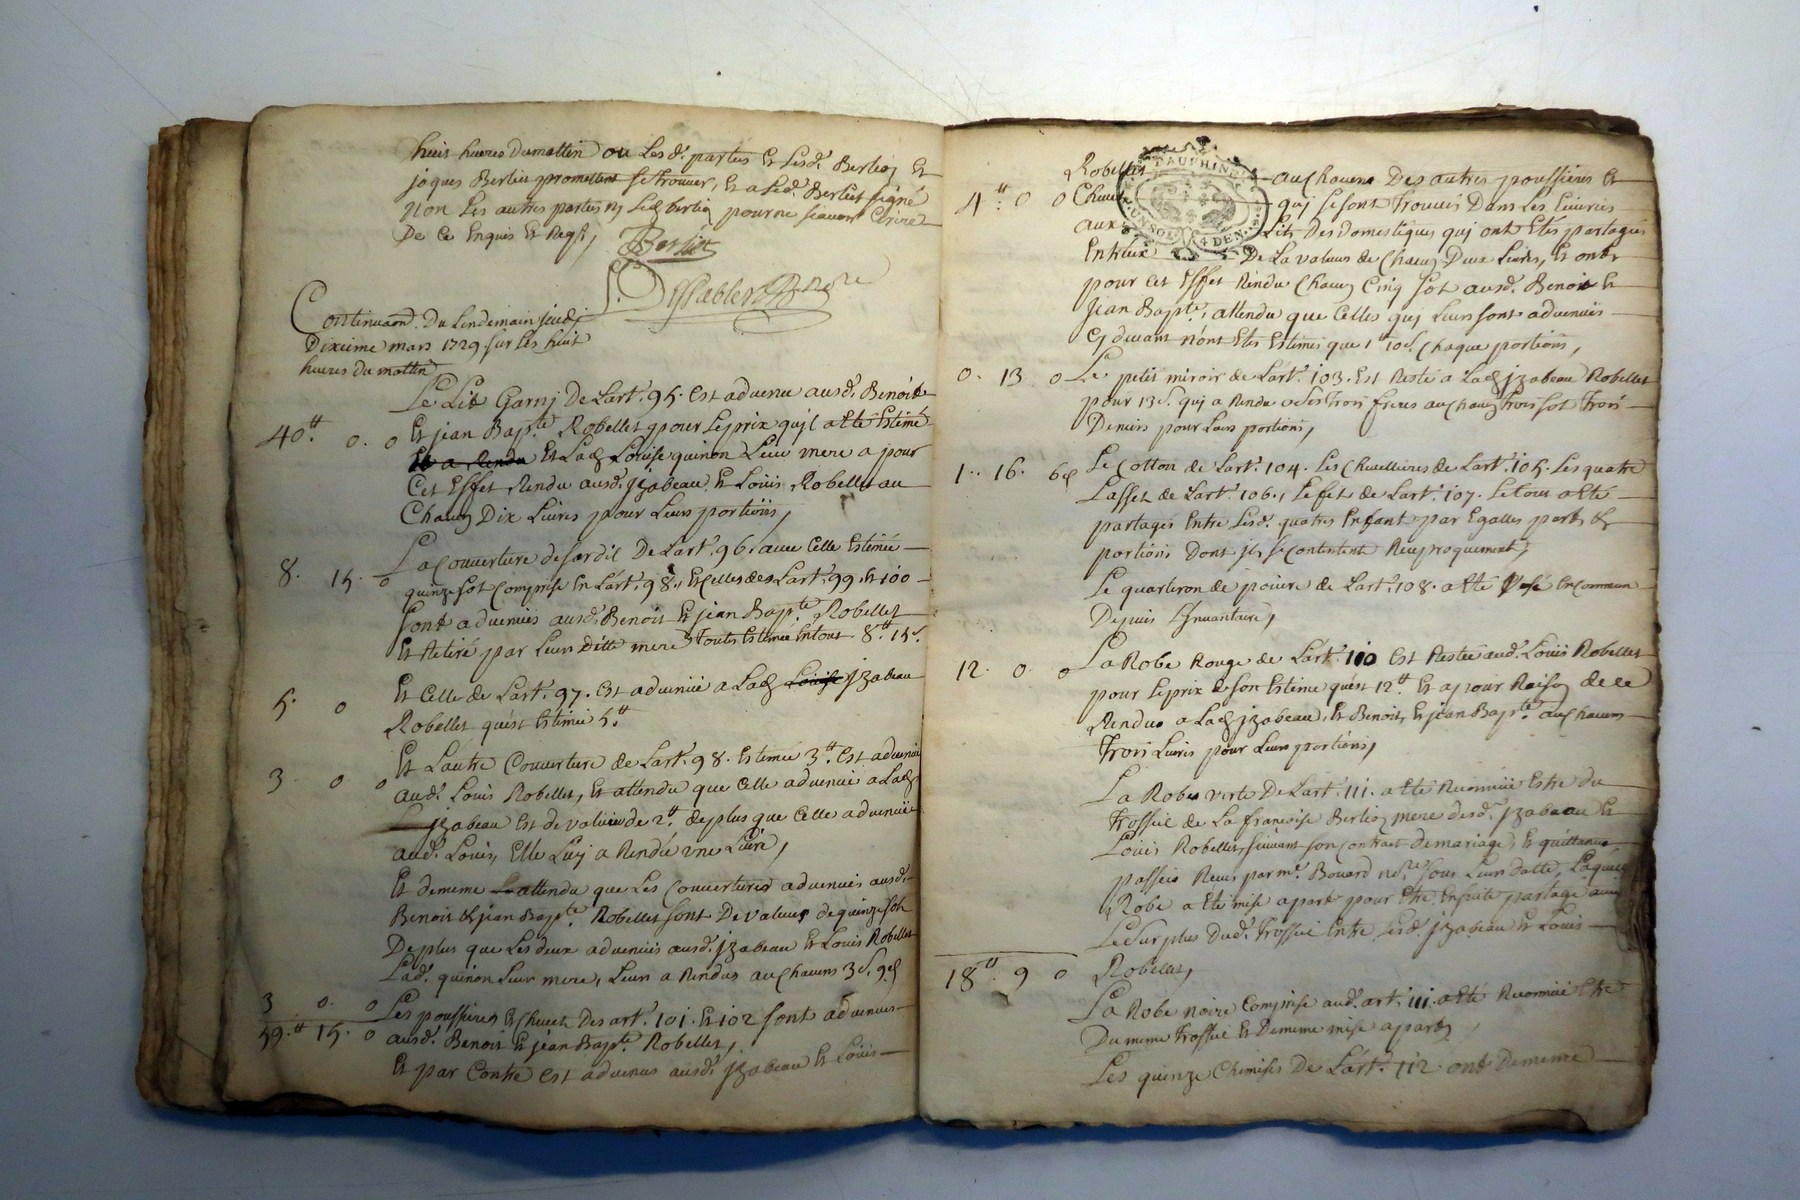 huit heures du mattin ou Lesd. parties Et Lesd. Berlioz Et
joques Berliet promettent se trouver, Et a Led. Berliet signé
Non Les autres parties ny Led berlioz pour ne scavoir Ecrire
De Ce Enquis Et Requis,
Berliet
Continuaon. Du Lendemain jeudj
Dixieme mars 1729. sur Les huit
heures du mattin
Le Lit Garnj De Lart. 95. est advenu ausd. Benoit
40.tt 0. 0 Et jean Bapte. Robellet pour Le prix qujl a Eté Estimé
Et a Rendu Et Lad. Louise quinon Leur mere a pour
Cet Effet Rendu ausd. jzabeau Et Loüis Robellet au
Chacun Dix Livres pour Leurs portions,
8. 15. 0 La Couverture de sardis De Lart. 96. avec Celle Estimée
quinze sot Comprise En Lart. 98., Et Celles des Lart. 99. Et 100
Sont advenües ausd. Benoit Et jean Bapte. Robellet
Et Retiré par Leur Ditte mere Toutes Estimée En tout 8.tt 15s.
5. 0 Et Celle de Lart. 97. est advenüe a Lad. Louise jzabeau
Robellet quest Estimée 5.tt
3 0 0 Et Lautre Couverture de Lart. 98. Estimée 3.tt Est advenüe
aud. Loüis Robellet, Et attendu que Celle advenüe a Lad.
jzabeau Est de valüeu de 2.tt de plus que Celle advenüe
aud. Loüis, Elle Luj a Rendu vne Livre,
Et de meme attendu que Les Couvertures advenües ausd.
Benoit Et jean Bapte. Robellet sont De valeur de quinze sot
De plus que Les deux advenües ausd. jzabeau Et Loüis Robellet
Lad. quinon Leur mere, Leurs a Rendus au Chacuns 3s. 9d
3 0. 0 Les poussieres Et Chevet Des art. 101. Et 102 sont advenües
59.tt 15. 0 ausd. Benoit Et jean Bapte. Robellet,
Et par Contre est advenus ausd. jzabeau Et Loüis
Robellet au Chacuns Des autres poussieres Et
4tt. 0 0 Chevet quj se sont Trouvés Dans Les
aux Lits Des domestiques quj ont Etés partagés
Entreux De La valeur de Chacun Deux Livres, Et ont
pour Cet Effet Rendu Chacun Cinq sot ausd. Benoit Et
Jean Bapte., attendu que Celles quj Leurs sont advenües
Cy devant n'ont Etés Estimés que 1tt 10s. Chaque portions,
0. 13 0 Le petit miroir de Lart. 103. Est Resté a Lad. jzabeau Robellet
pour 13s. quj a Rendu a Ses Trois freres au Chacun Trois sot Trois
Deniers pour Leurs portions,
1.. 16. 6d Le Cotton de Lart. 104. Les de Lart. 105. Les quatre
de Lart. 106., Le fet de Lart. 107. Le tout a Eté
partagés Entre Lesd. quatres Enfant par Egalles part Et
portions Dont jls se Contentent Reciproquement,
Le quarteron de poivre de Lart. 108. a Eté Vsé En Commun
Depuis L'Inventaire,
12. 0. 0 La Robe Rouge de Lart. 110 Est Restée aud. Loüis Robellet
pour Le prix de son Estime quest 12.tt Et a pour Raison de Ce
Rendus a Lad. jzabeau, Et Benoit, Et jean Bapte. au Chacuns
Trois Livres pour Leurs portions,
La Robe verte De Lart. 111. a Eté Reconnüe Estre du
Trossel de La francoise Berlioz mere desd. jzabeau Et
Loüis Robellet, suivant son Contract de mariage, Et quittance
passés Receus par me. Bouard nore. sous Leurs datte, Laquelle
Robe a Eté mise apart pour Etre Ensuite partagé avec
Le Surplus Dud. Trossel Entre Lesd. jzabeau Et Loüis
18tt. 9 0 Robellet,
La Robe noire Comprise aud. art. 111. a Eté Reconnüe Etre
Du meme Trossel Et De meme mise apart,
Les quinze Chemises De Lart. 112 ont De meme